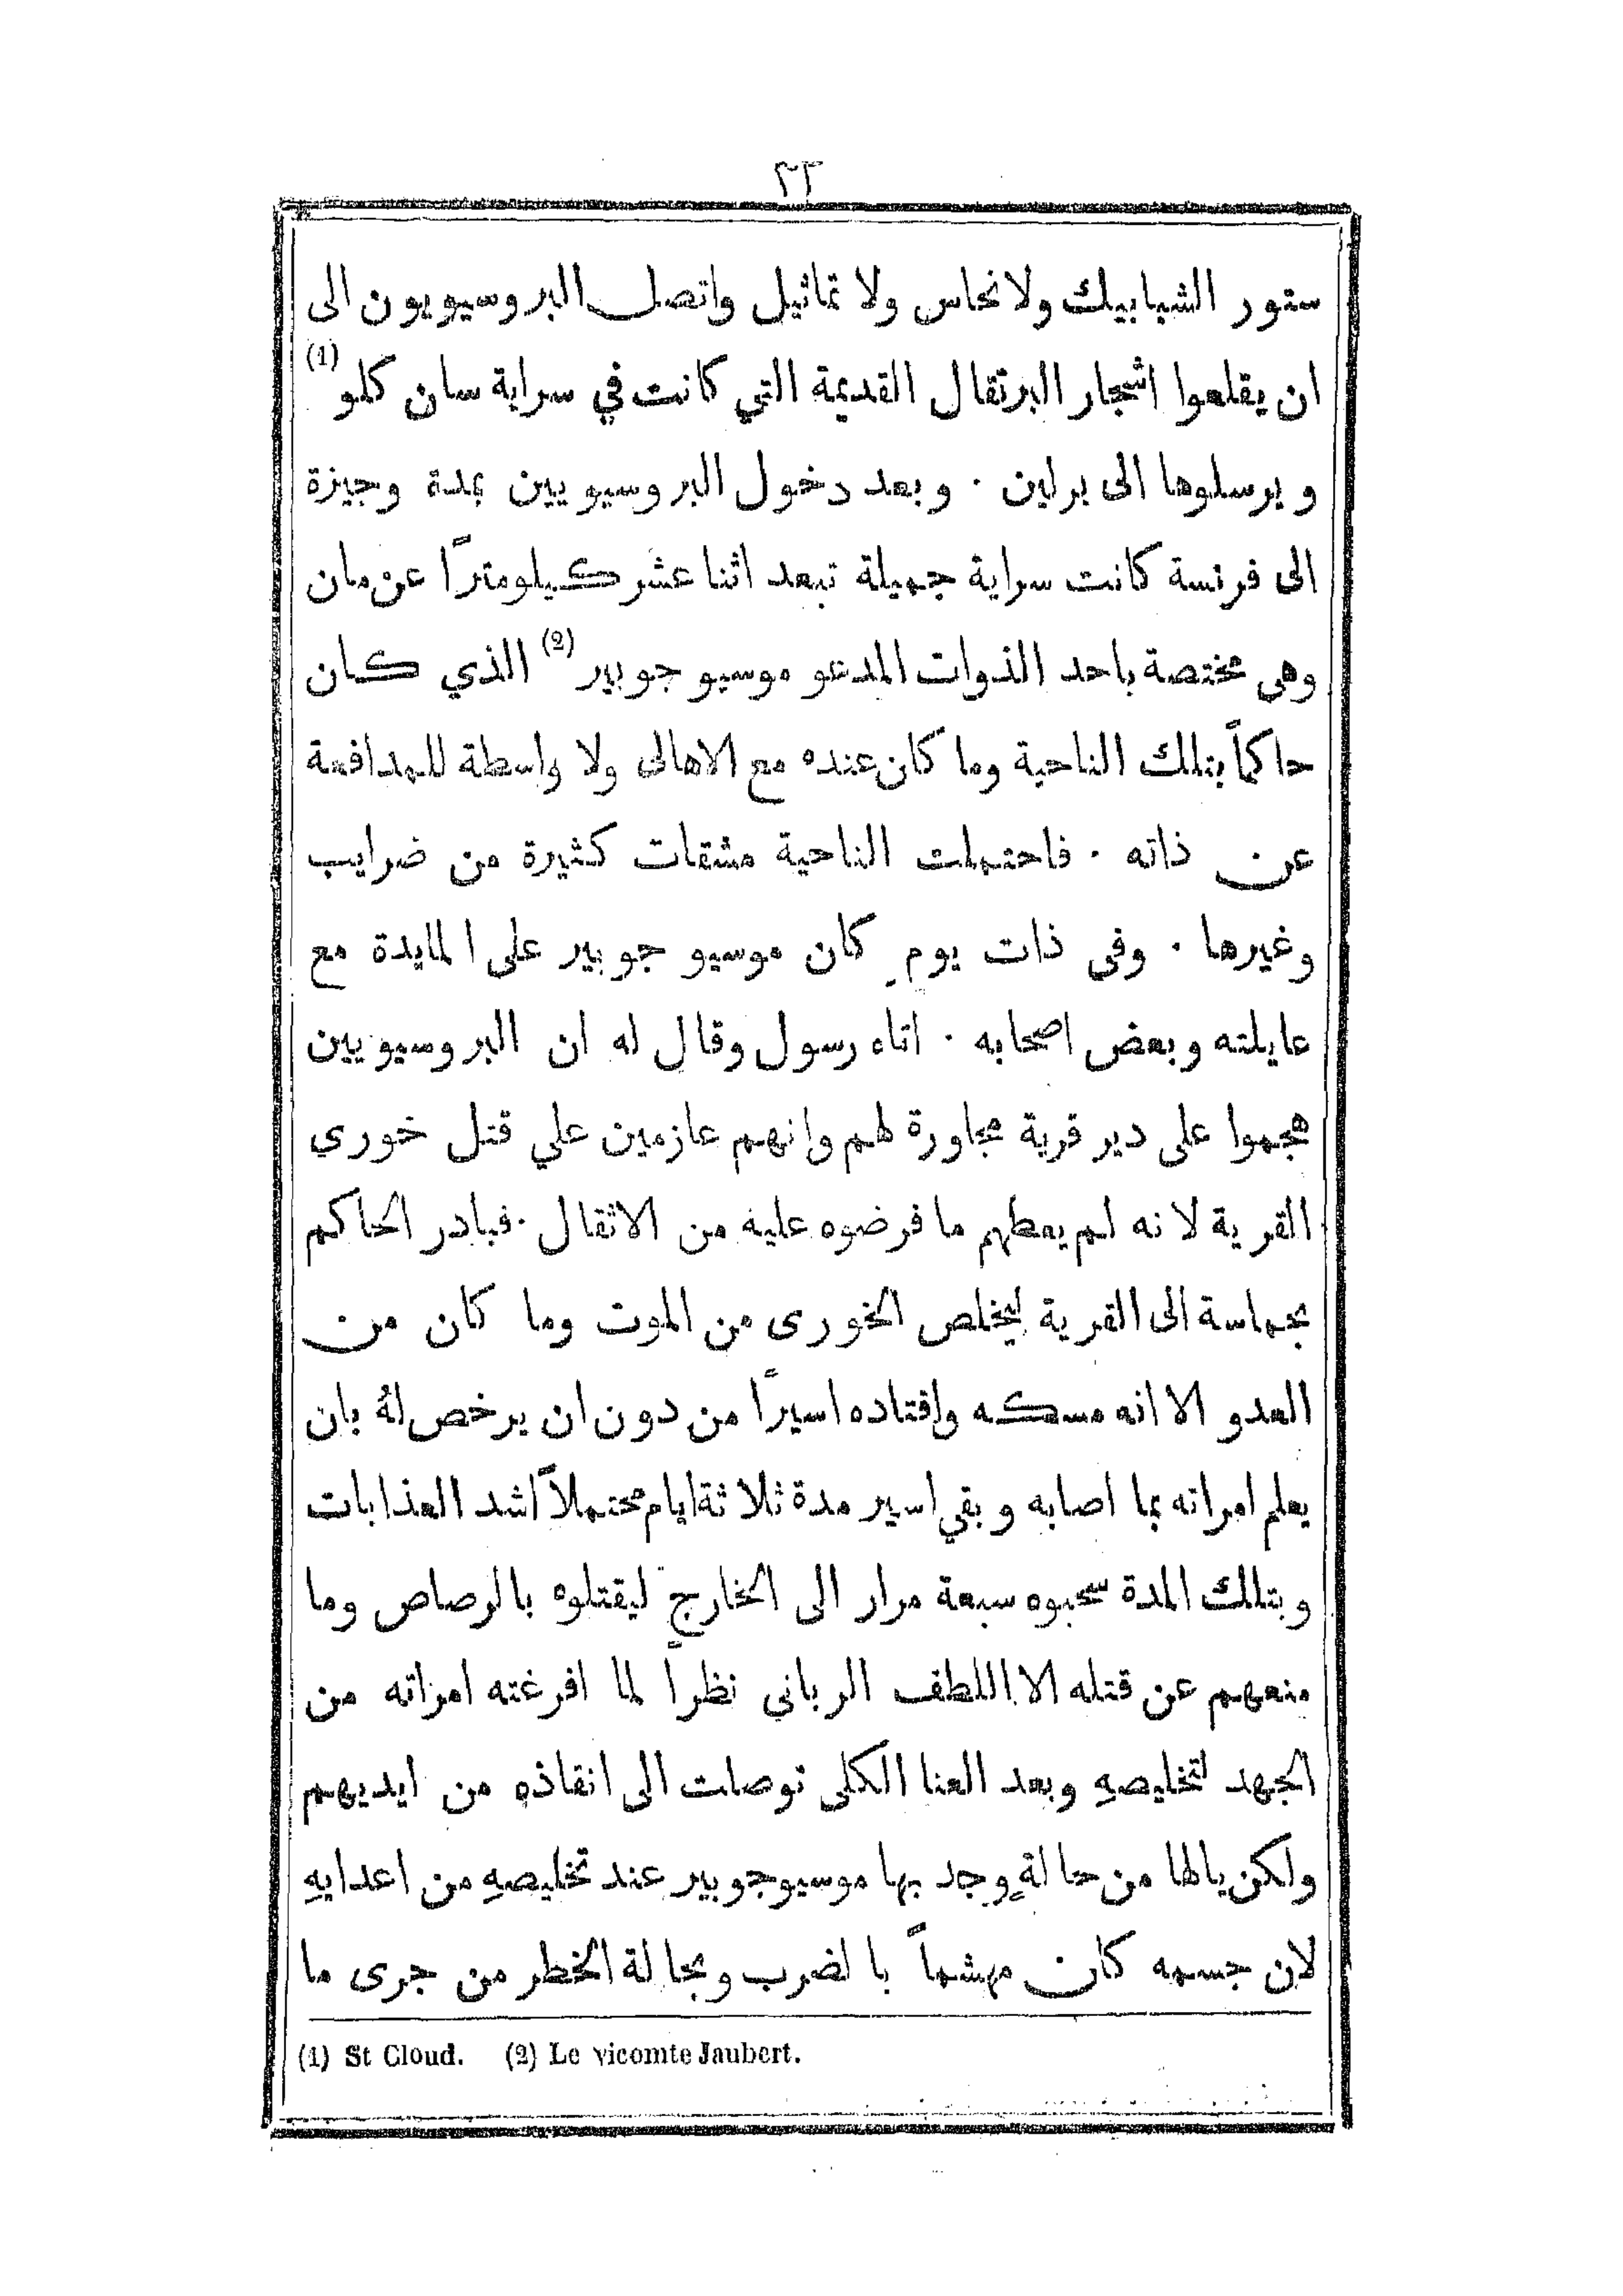 ٢٣
ستور الشبابيك ولا نحاس ولا تماثيل واتصل البروسيويون الى
ان يقلعوا اشجار البرتقال القديمة التي كانت في سراية سان كلو (1)
ويرسلوها الى برلين . وبعد دخول البروسيويين بمدة وجيزة
الى فرنسة كانت سراية جميلة تبعد اثنا عشر كيلومتراً عن مان
وهى مختصة باحد الذوات المدعو موسيو جوبير (2) الذي كان
حاكماً بتلك الناحية وما كان عنده مع الاهالى ولا واسطة للمدافعة
عن ذاته . فاحتملت الناحية مشقات كثيرة من ضرايب
وغيرها . وفى ذات يومٍ كان موسيو جوبير على المايدة مع
عايلته وبعض اصحابه . اتاه رسول وقال له ان البروسيويين
هجموا على دير قرية مجاورة لهم وانهم عازمين علي قتل خورى
القرية لانه لم يعطهم ما فرضوه عليه من الاثقال . فبادر الحاكم
بحماسة الى القرية ليخلص الخورى من الموت وما كان من
العدو الا انه مسكه واقتاده اسيراً من دون ان يرخص لهُ بان
يعلم امراته بما اصابه وبقي اسير مدة ثلاثة ايام محتملاً اشد العذابات
وبتلك المدة سحبوه سبعة مرار الى الخارج ليقتلوه بالرصاص وما
منعهم عن قتله الا اللطف الرباني نظراً لما افرغته امراته من
الجهد لتخليصهِ وبعد العنا الكلى توصلت الى انقاذهِ من ايديهم
ولكن يالها من حالةٍ وجد بها موسيو جوبير عند تخليصهِ من اعدايهِ
لان جسمه كان مهشماً بالضرب وبحالة الخطر من جرى ما
(1) St Cloud. (2) Le vicomte Jaubert.